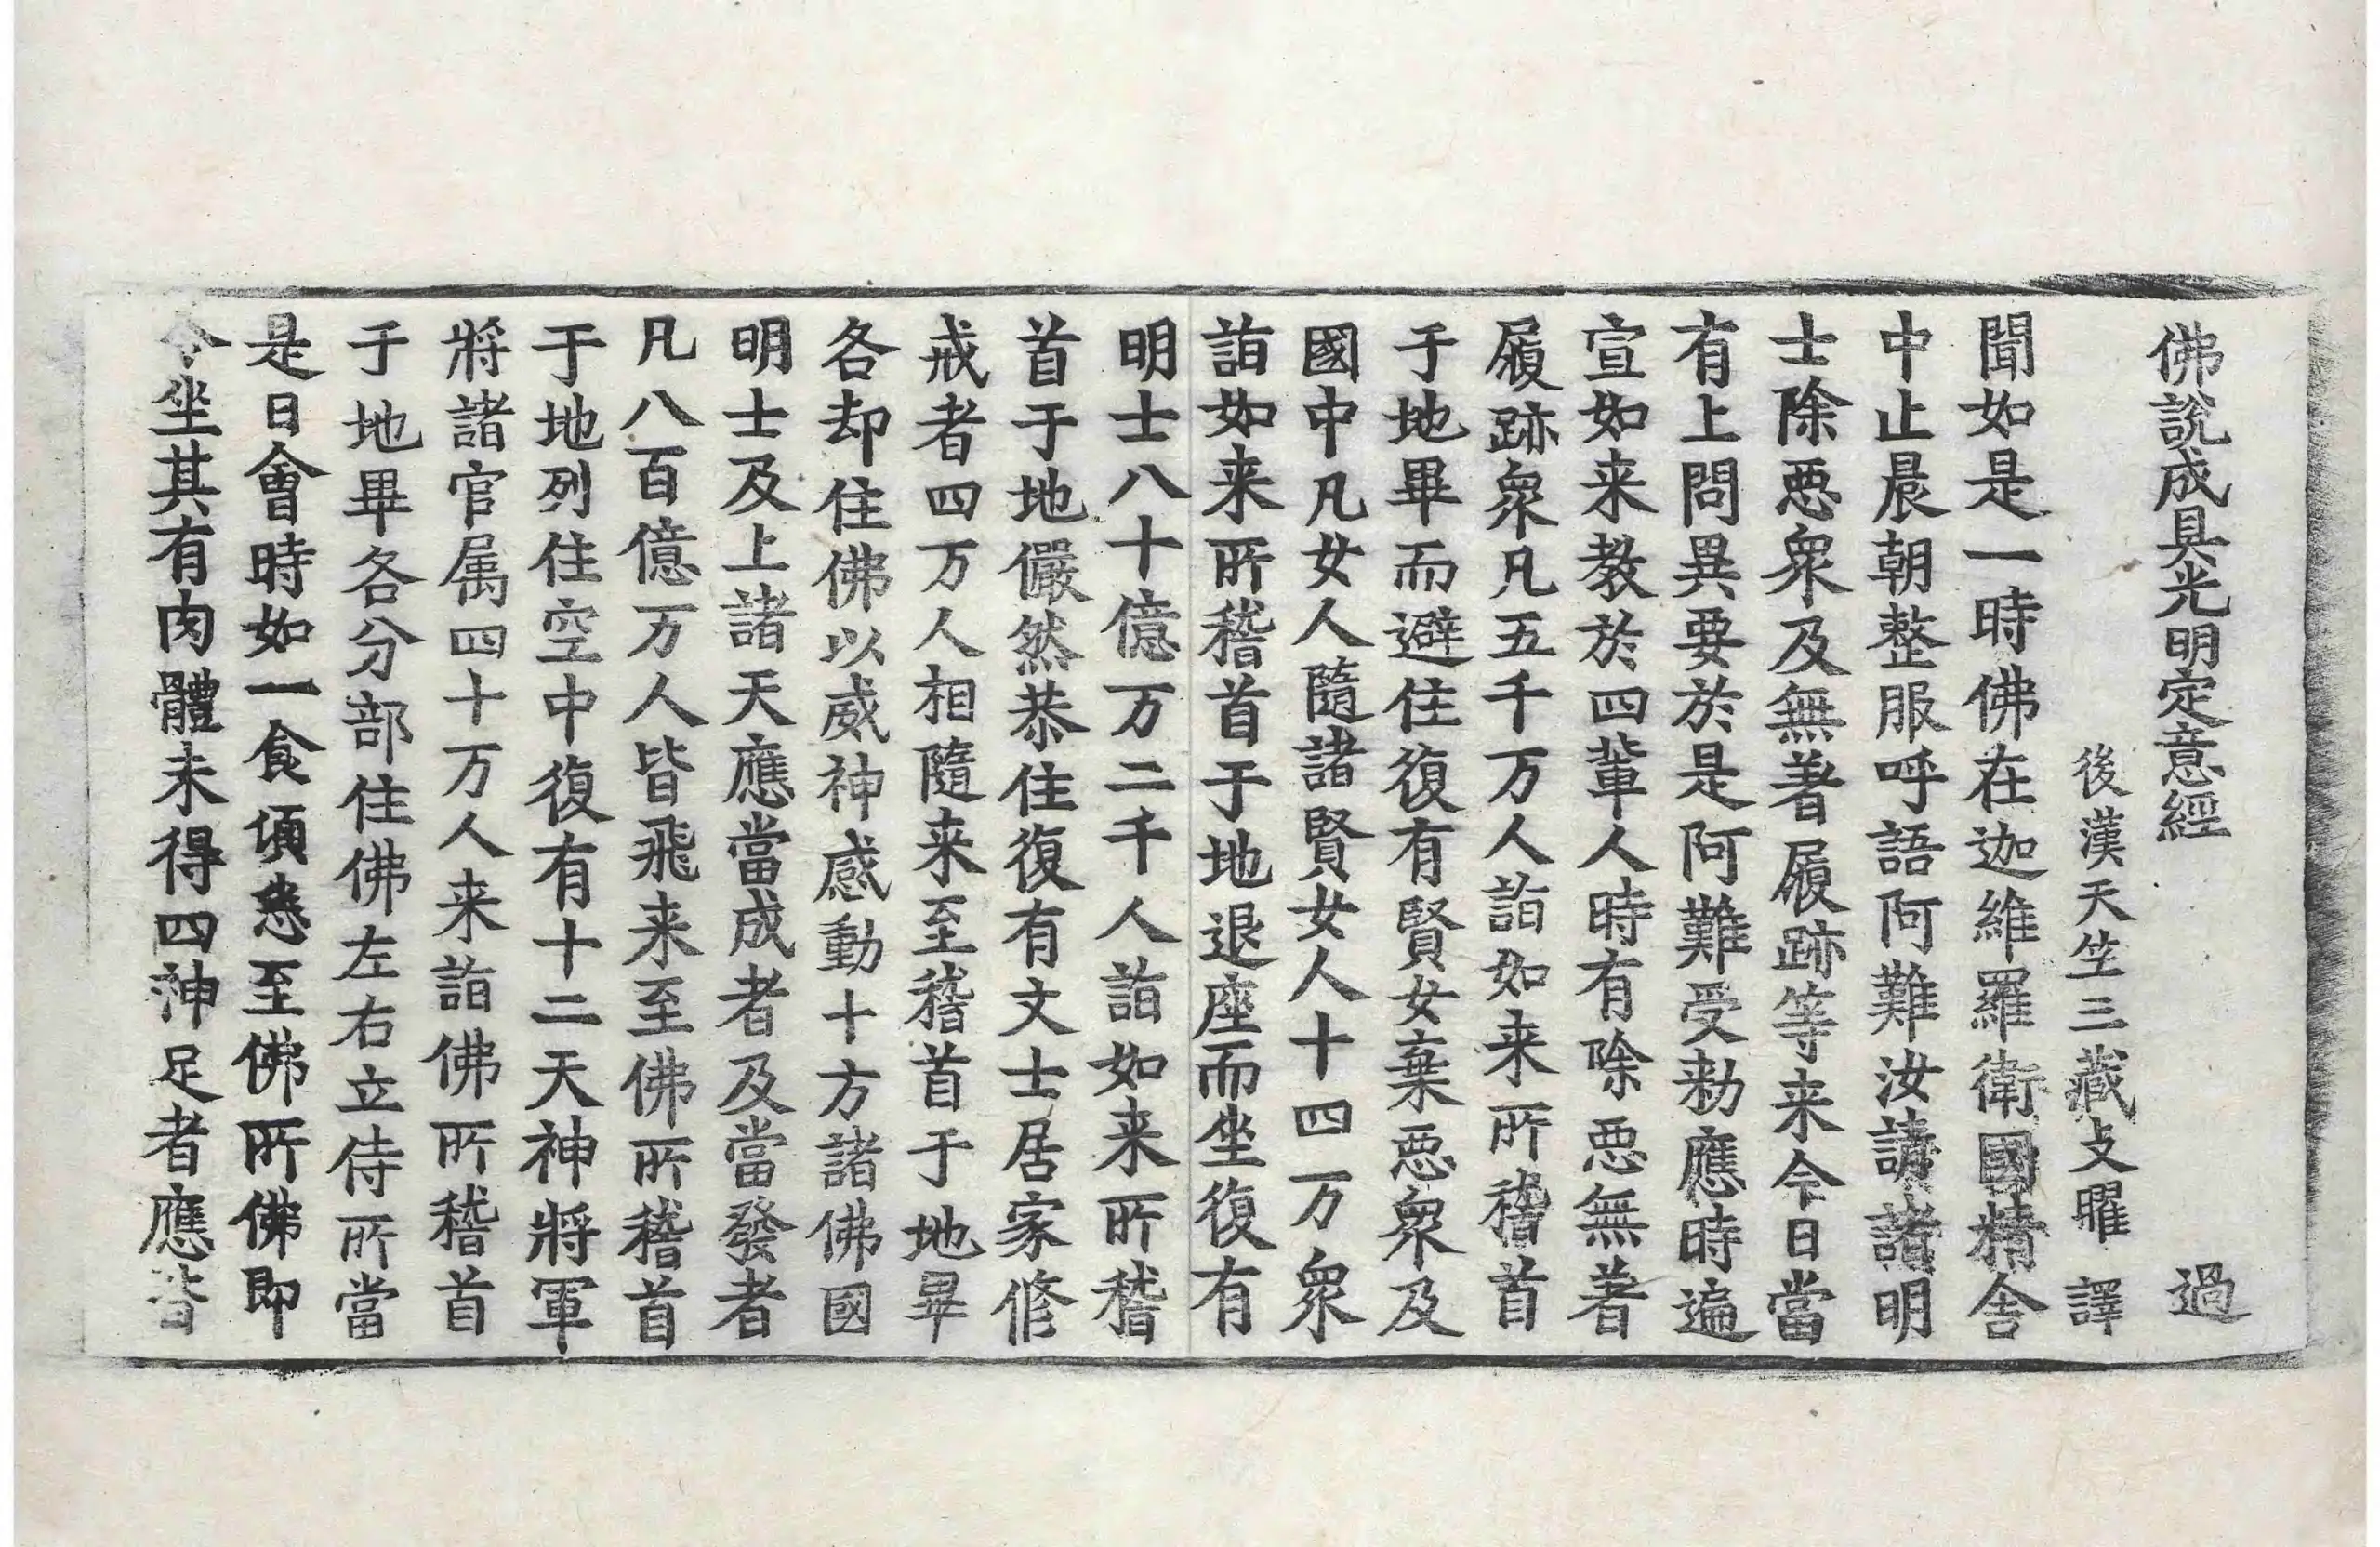 佛說成具光明定意經 過
後漢天竺三藏支曜 譯
聞如是一時佛在迦維羅衛國精舍
中止晨朝整服呼語阿難汝請諸明
士除惡衆及無著履跡等来今日當
有上問異要於是阿難受勑應時遍
宣如来教於四輩人時有除惡無著
履跡衆凡五千万人詣如来所稽首
于地畢而避住復有賢女棄惡衆及
國中凡女人隨諸賢女人十四万衆
詣如来所稽首于地退座而坐復有
明士八十億万二千人詣如来所稽
首于地儼然恭住復有文士居家修
戒者四万人相隨来至稽首于地畢
各却住佛以威神感動十方諸佛國
明士及上諸天應當成者及當發者
凡八百億万人皆飛来至佛所稽首
于地列住空中復有十二天神將軍
將諸官属四十万人来詣佛所稽首
于地畢各分部住佛左右立侍所當
是日會時如一食頃悉至佛所佛即
令坐其有肉體未得四神足者應皆